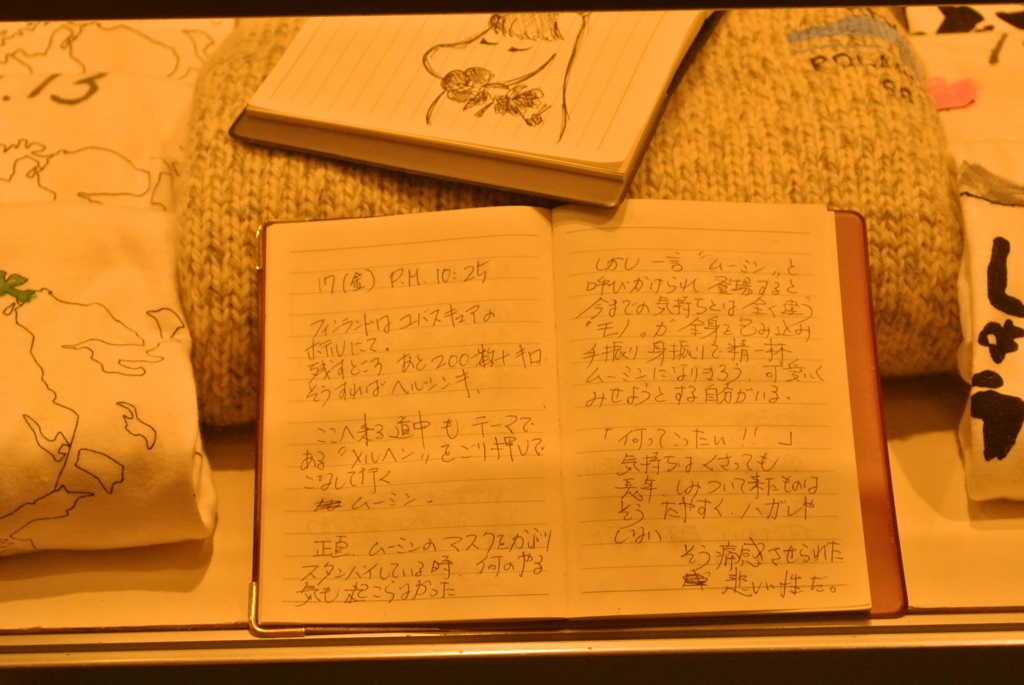 .13
17(金) P.M. 10:25
フィンランドはユバスキュアの
ホテルにて。
残すところ あと200数十キロ.
そうすればヘルシンキ.
ここへ来る道中も テーマで
ある "メルヘン" をごり押しで
こなして行く
ムーミン.
正直、ムーミンのマスクをかぶり
スタンバイしている時、何のやる
気も起こらなかった
しかし一言 "ムーミン" と
呼びかけられ 登場すると
今までの気持ちとは 全く違う
"モノ" が 全身を包み込み
手振り 身振りで 精一杯
ムーミンになりきろう、可愛いく
みせようとする自分がいる.
「何ってこったい!!」
気持ちはくさっても
長年、しみついて来たものは
そう たやすく、ハガレや
しない
そう痛感させられた
悲しい性だ。